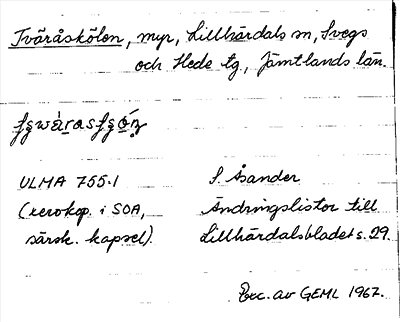 Tväråskölen, myr, Lillhärdals sn, Svegs
och Hede tg, Jämtlands län.
ULMA 755.1
(xerokop. i SOA,
särsk. kapsel).
S. Åsander
Ändringslistor till
Lillhärdalsbladet s. 29.
Exc. av GEML 1967.